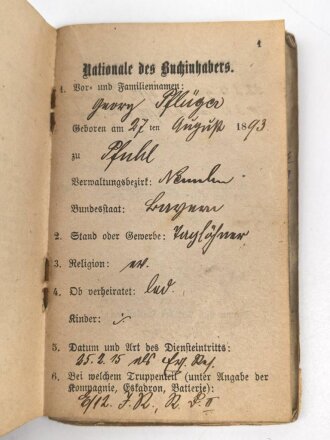 1
Nationale des Buchinhabers.
1. Vor- und Familiennamen:
Georg Pflüger
Geboren am 27 ten August 1893
zu Pfuhl
Verwaltungsbezirk: Neuulm
Bundesstaat: Bayern
2. Stand oder Gewerbe: Taglöhner
3. Religion: ev.
4. Ob verheiratet: led.
Kinder: ./.
5. Datum und Art des Diensteintritts:
25.2.15 als Ers. Res.
6. Bei welchem Truppenteil (unter Angabe der
Kompagnie, Eskadron, Batterie):
/12. J. R.